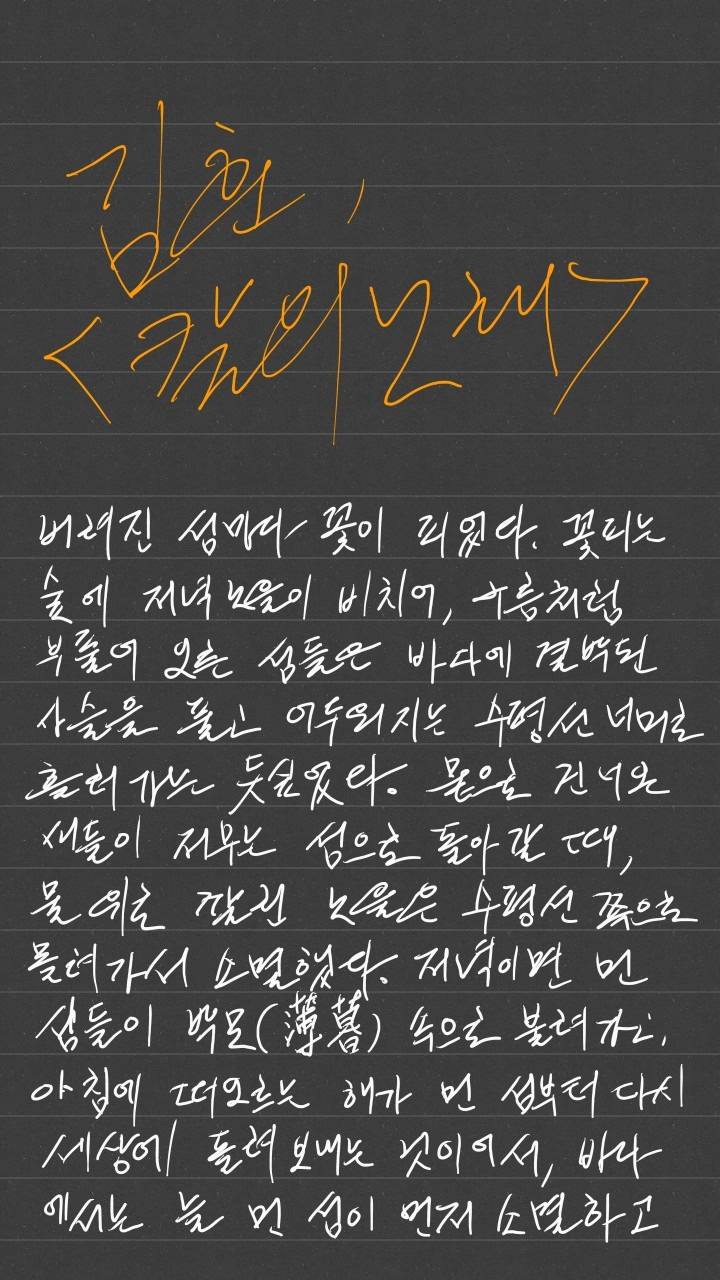 김훈,
<칼의 노래>
버려진 섬마다 꽃이 피었다. 꽃피는
숲에 저녁 노을이 비치어, 구름처럼
부풀어 오른 섬들은 바다에 결박된
사슬을 풀고 어두워지는 수평선 너머로
흘러가는 듯싶었다. 뭍으로 건너온
새들이 저무는 섬으로 돌아갈 때,
물 위로 깔린 노을은 수평선 쪽으로
몰려가서 소멸했다. 저녁이면 먼
섬들이 박모(薄暮) 속으로 불려가고,
아침에 떠오르는 해가 먼 섬부터 다시
세상에 돌려 보내는 것이어서, 바다
에서는 늘 먼 섬이 먼저 소멸하고